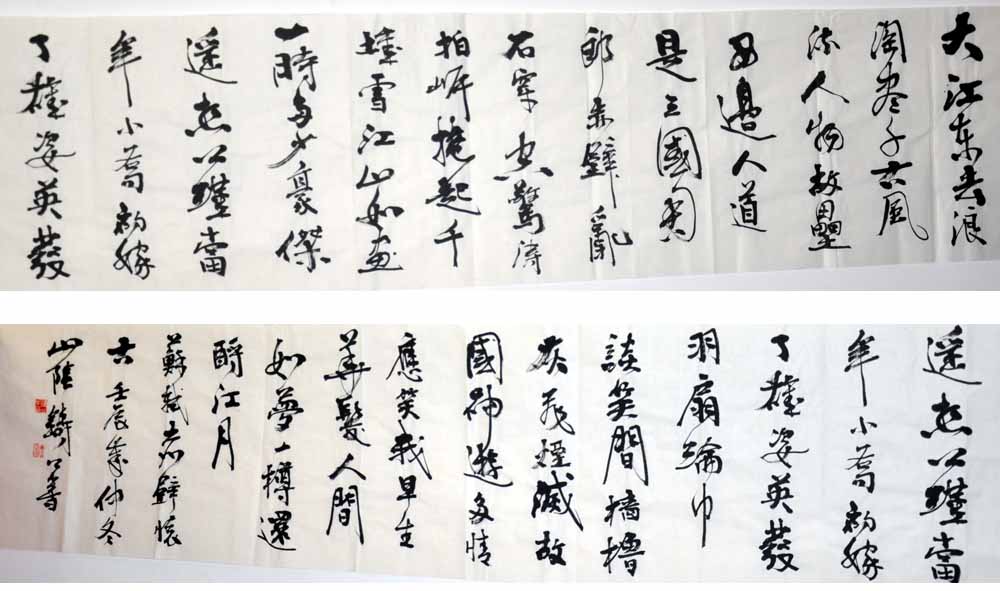 大江东去浪
淘尽千古風
流人物故壘
西邊人道
是三國周
郎赤壁亂
石穿空驚涛
拍岸捲起千
堆雪江山如画
一時多少豪傑
遥想公瑾當
年小喬初嫁
了雄姿英發
遥想公瑾當
年小喬初嫁
了雄姿英發
羽扇綸巾
談笑間檣櫓
灰飛煙滅故
國神遊多情
應笑我早生
華髮人間
如夢一樽還
酹江月
蘇軾赤壁懷
古 壬辰年仲冬
山陰 書